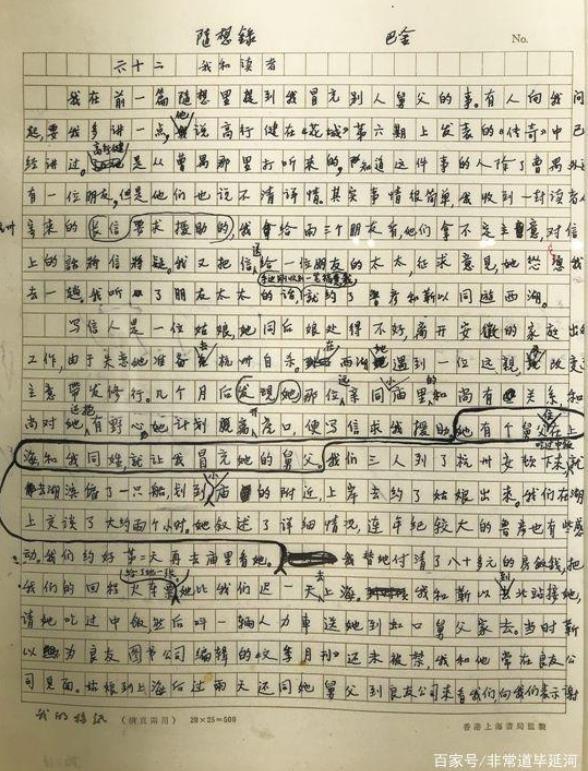 隨想錄 巴金 No.
六十二 我和读者
我在前一篇随想里提到我冒充别人舅父的事。有人向我问
起,要我多讲一点,他说高行健在《花城》第六期上发表的《传奇》中已
高行健
经讲过。是从曹禺那里打听来的,知道这件事的人除了曹禺外还
有一位朋友,但是他们也说不清详情。其实事情很简单,我收到一封读者从
杭州
寄来的长信(要求援助的),我给两三个朋友看,他们拿不定主意,对信
上的話將信將疑。我又把信送给一位朋友的太太,征求意见,她怂恿我
去一趟。我听了朋友太太的话,就约了鲁彦和靳以同游西湖。
写信人是一位姑娘,她同后娘处得不好,离开安徽的家庭出外
工作,由于失恋她准备去杭州自杀。在西湖她遇到一位远親,改变
主意带发修行。几个月后发現她那位远亲同小庙里的和尚有关系,和
尚对她还抱有野心,她计划脱离虎口,便写信求我援助。她有个舅父住在上
海和我同姓,就让我冒充她的舅父。我们三人到了杭州安顿下来
吃过中饭就
去湖滨僱了一只船,划到小庙的附近,上岸去约了姑娘出来。我们在湖
上交谈了大约两个小时。她叙述了详细情况,连年纪较大的鲁彦也有些感
动。我们约好第二天再去庙里看她。我替她付清了八十多元的房饭钱,把
我们的回程火车票给了她一张。她比我们迟一天去上海。我和靳以到北站接她,
请她吃过中饭,然后叫一辆人力車送她到虹口舅父家去。当时靳
以为良友图书公司编辑的《文季月刊》还未被禁,我和他常在良友公
司见面。姑娘到上海后过两天还同她舅父到良友公司来看我们,向我们表示谢
我的稿紙 (橫直兩用) 20×25=500 香港上海書局監製
百家号/非常道毕延河